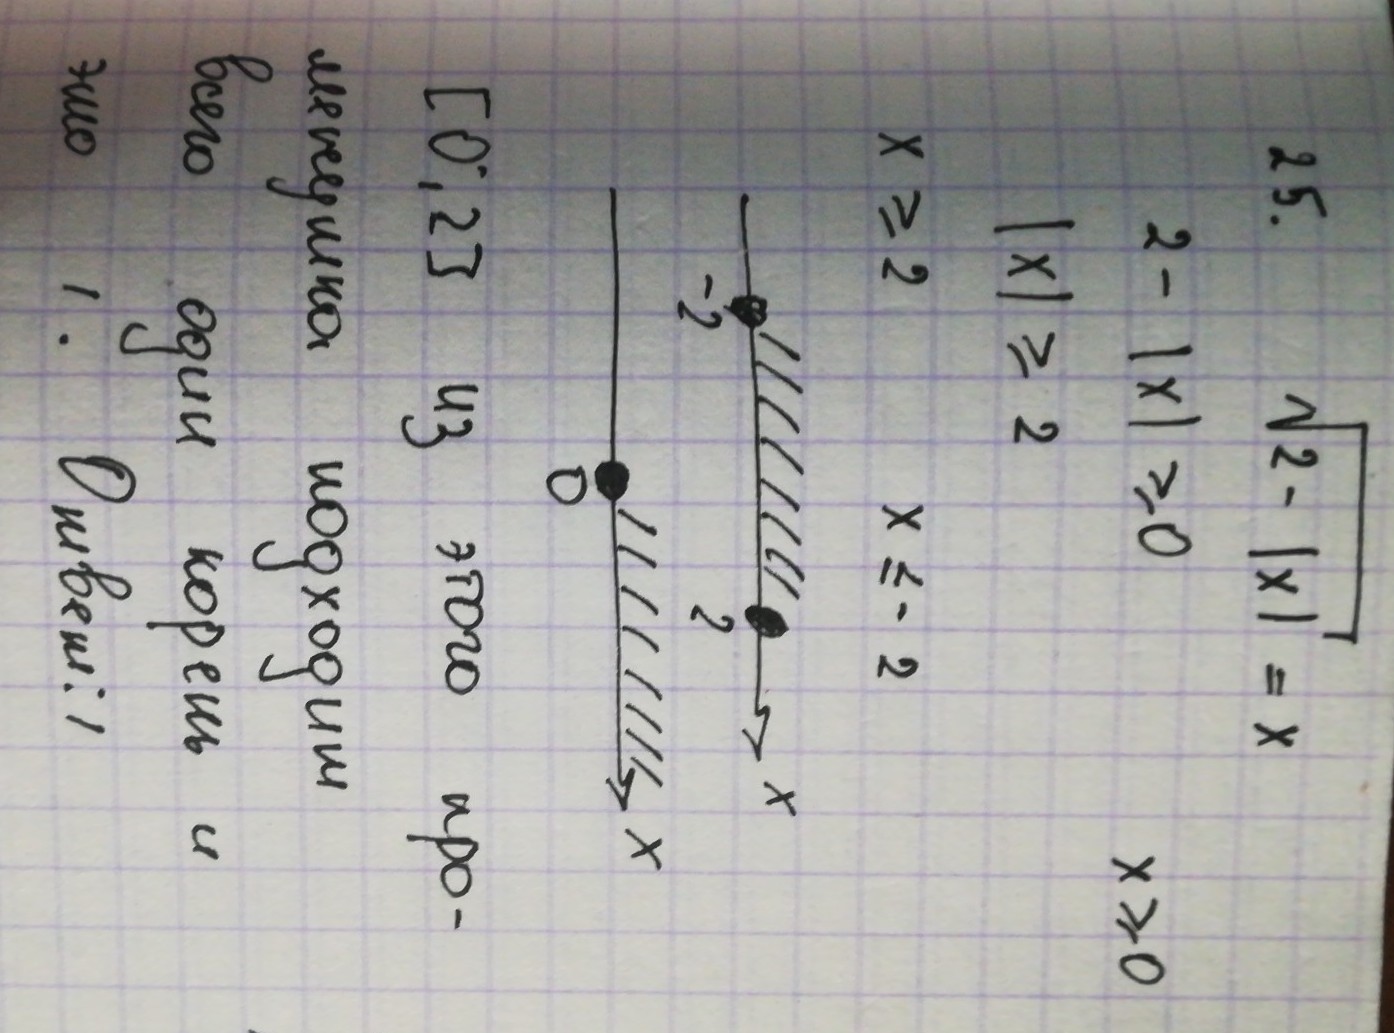 25. √2-|x| = x
2-|x| ≥ 0 x ≥ 0
|x| ≥ 2
x ≥ 2 x ≤ -2
-2 2 x
0 x
[0; 2] из этого про-
межутка подходит
всего один корень и
это 1. Ответ: 1